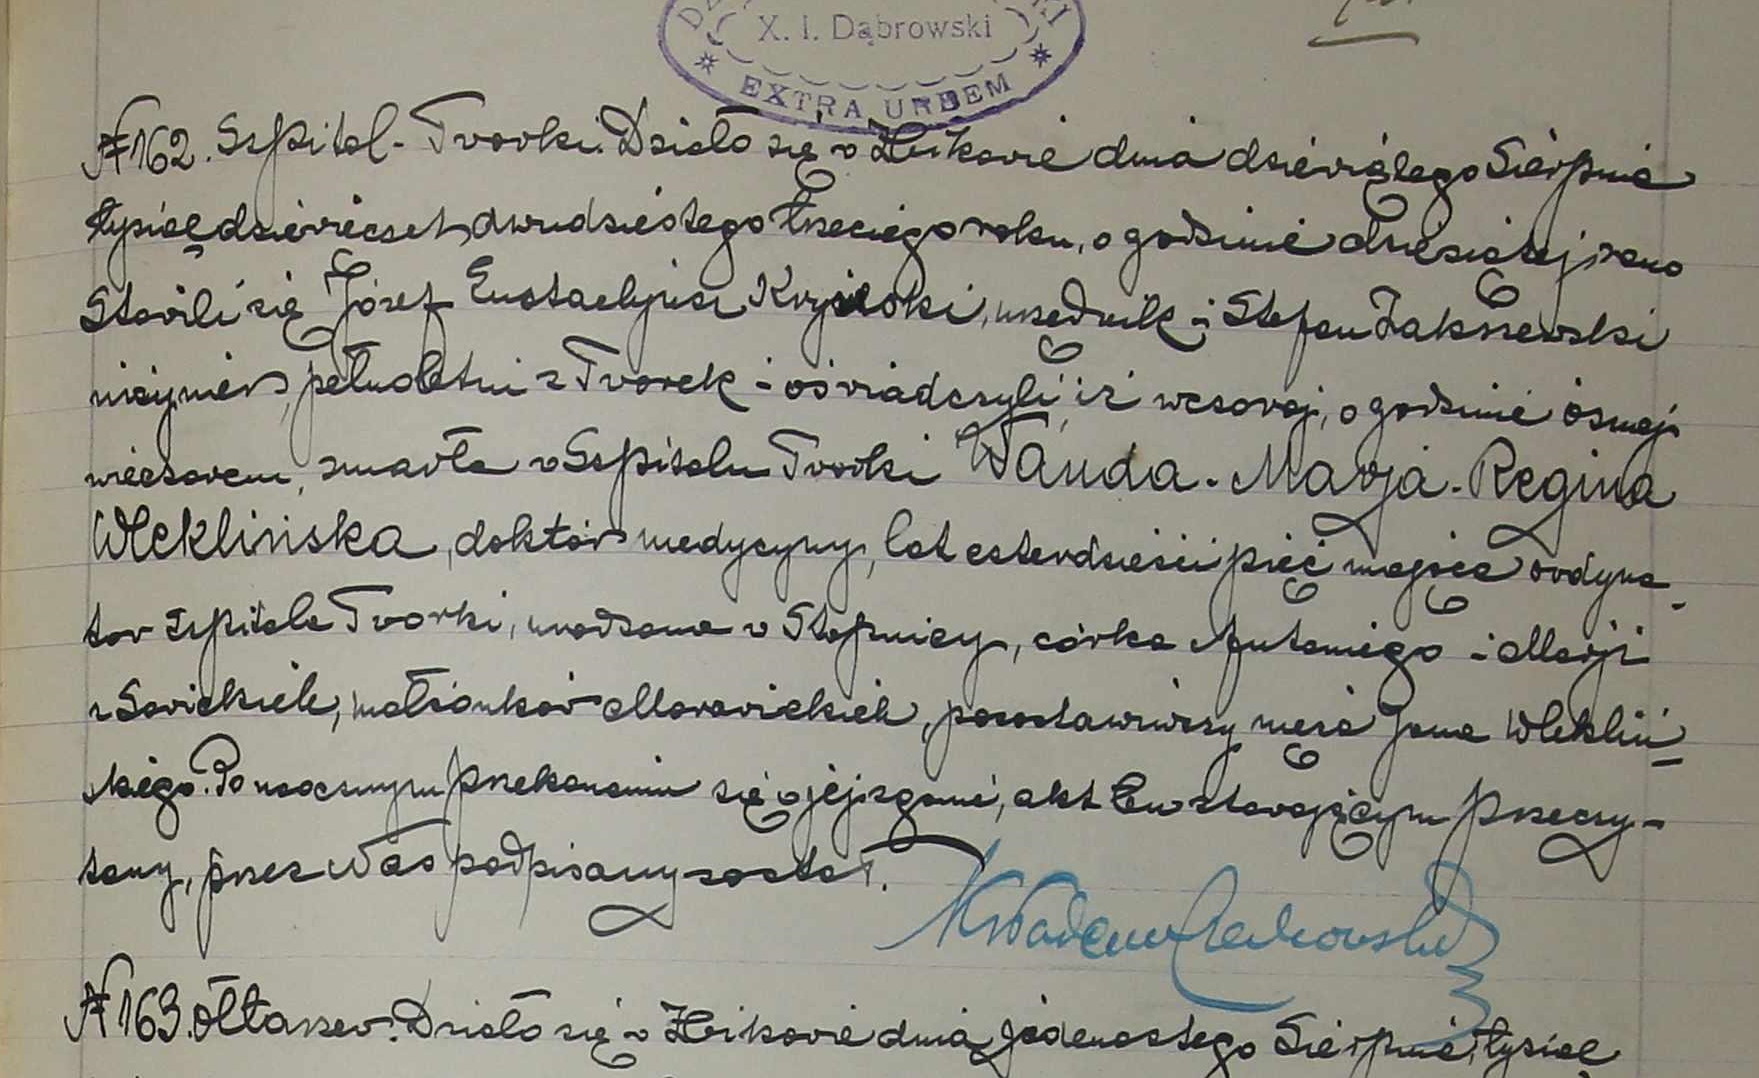 X. I. Dąbrowski
EXTRA URBEM
№ 162. Szpital - Tworki. Działo się w Żbikowie dnia dziewiątego Sierpnia
tysiąc dziewiećset dwudziestego trzeciego roku, o godzinie dziesiątej rano
Stawili się Józef Eustachjusz urzędnik i Stefan Zakrzewski
inżynier, pełnoletni z Tworek i oświadczyli, iż wczoraj, o godzinie ósmej
wieczorem, zmarła w Szpitalu Tworki Wanda - Marja - Regina
Wleklińska, doktór medycyny, lat czterdzieści pięć mająca ordyna-
tor szpitala Tworki, urodzona w Stopnicy, córka Antoniego i Marji
z Sawickich, małżonków Morawickich, pozostawiwszy męża Jana Wekliń-
skiego. Po naocznym przekonaniu się o jej zgonie, akt ten stawającym przeczy-
tany, przez Nas podpisany został.
№ 163. Ołtarzew. Działo się w Żbikowie dnia jedenastego Sierpnia, tysiąc